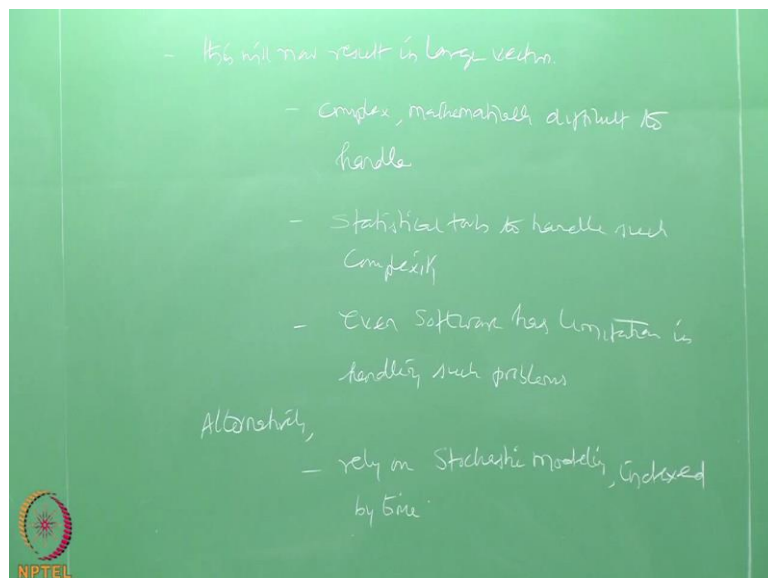 - this will now result in large vector.
- complex, mathematically difficult to
handle
- Statistical tools to handle such
Complexity
- Even Software has limitation in
handling such problems
Alternatively,
- rely on Stochastic modeling, indexed
by time.
NPTEL